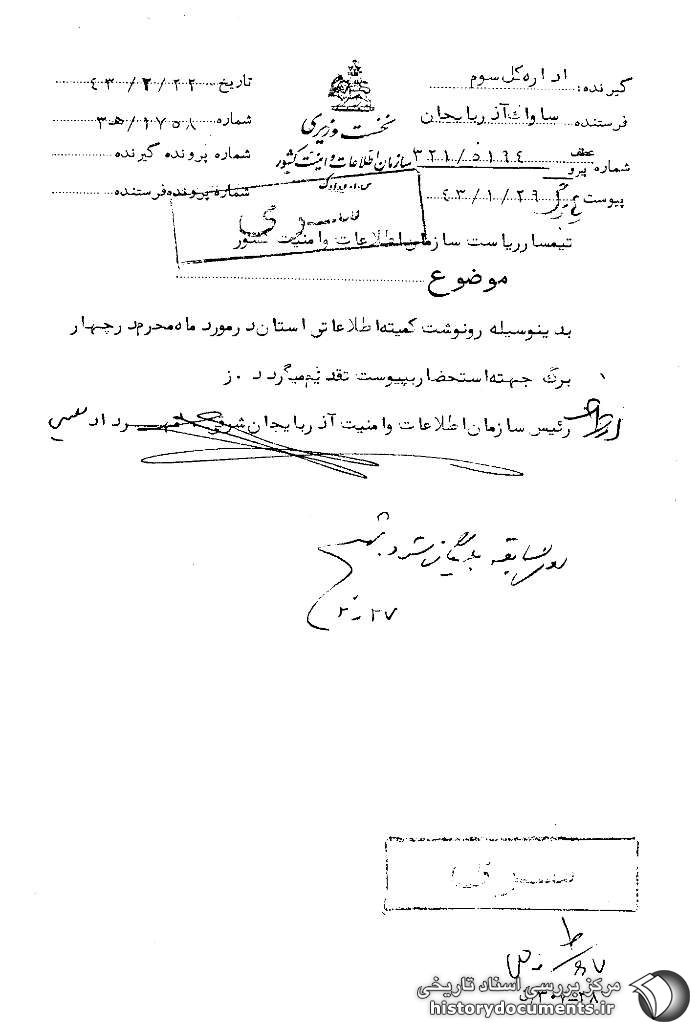 گیرنده: اداره کل سوم
فرستنده ساواک آذربایجان
شماره عطف پیرو ۳۲۱/۵۱۶٤
پیوست ٤۳/۱/۲۹
نخست وزیری
سازمان اطلاعات و امنیت کشور
س.ا.و.ا.ک
تاریخ ٤۳/۲/۲۲
شماره ۱۷۵۸/ه۳
شماره پرونده گیرنده
شماره پرونده فرستنده
سری
تیمسار ریاست سازمان اطلاعات و امنیت کشور
موضوع
بدینوسیله رونوشت کمیته اطلاعاتی استان در مورد ماه محرم در چهار
برگ جهته استحضار بپیوست تقدیم میگردد . ز
رئیس سازمان اطلاعات و امنیت آذربایجان شرقی مهرداد
سری
مرکز بررسی اسناد تاریخی
historydocuments.ir